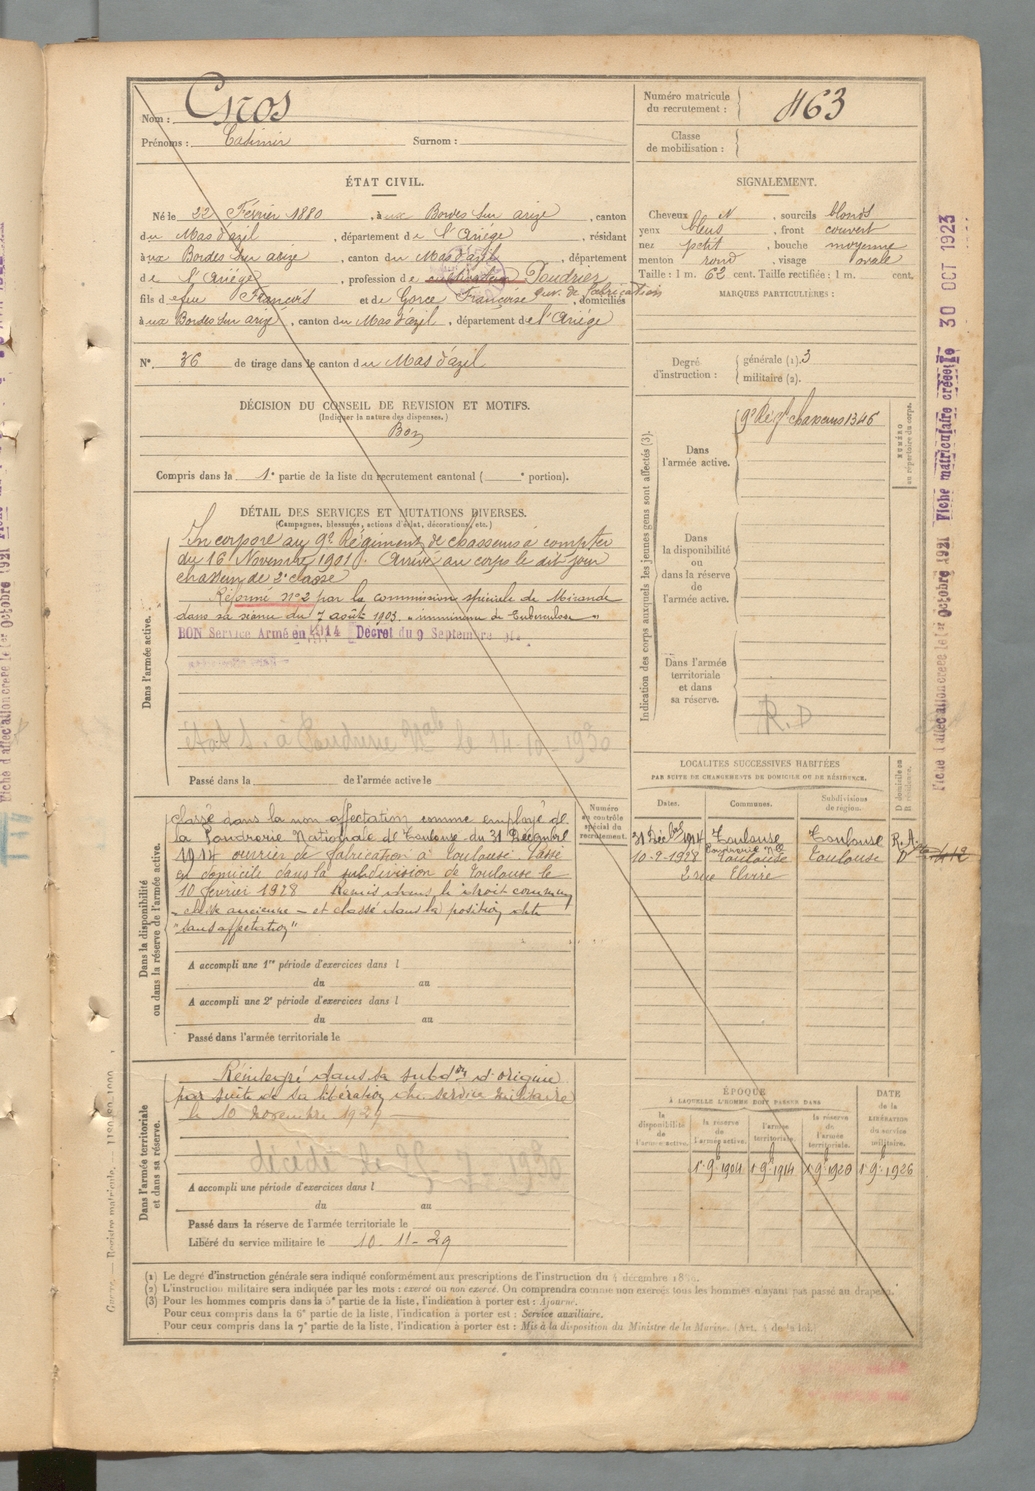 Nom : Cros
Prénoms : Casimir Surnom :
Numéro matricule du recrutement : 463
Classe de mobilisation :
ÉTAT CIVIL.
Né le 22 Février 1880, à ux Bordes sur arize, canton
du Mas d'azil, département de l'Ariège, résidant
à ux Bordes sur arize, canton du Mas d'azil, département
de l'Ariège, profession de cultivateur Poudrier
ouv. de fabrication
fils de feu François et de Gorce Françoise, domiciliés
à ux Bordes sur arize, canton du Mas d'azil, département de l'Ariège
N° 36 de tirage dans le canton du Mas d'azil
SIGNALEMENT.
Cheveux N, sourcils blonds
yeux bleus, front couvert
nez petit, bouche moyenne
menton rond, visage ovale
Taille : 1 m. 62 cent. Taille rectifiée : 1 m. cent.
MARQUES PARTICULIÈRES :
Degré d'instruction : générale (1). 3
militaire (2).
DÉCISION DU CONSEIL DE REVISION ET MOTIFS.
(Indiquer la nature des dispenses.)
Bon
Compris dans la 1e partie de la liste du recrutement cantonal ( e portion).
DÉTAIL DES SERVICES ET MUTATIONS DIVERSES.
(Campagnes, blessures, actions d'éclat, décorations, etc.)
Dans l'armée active.
Incorporé au 9e Régiment de chasseurs à compter
du 16 Novembre 1901. Arrivé au corps le dit jour
chasseur de 2e classe
Réformé n°2 par la commission spéciale de Mirande
dans sa séance du 7 août 1903. "imminence de Tuberculose"
BON Service Armé en 1914 Décret du 9 Septembre
à Poudrerie Nale le 14-10-1930
Passé dans la de l'armée active le
Indication des corps auxquels les jeunes gens sont affectés (3).
Dans l'armée active.
9e Régt chasseurs 1346
NUMÉRO au répertoire du corps.
Dans la disponibilité ou dans la réserve de l'armée active.
Dans l'armée territoriale et dans sa réserve.
R.D
Dans la disponibilité ou dans la réserve de l'armée active.
Classé dans la non affectation comme employé de
la Poudrerie Nationale de Toulouse du 31 Décembre
1914 ouvrier de fabrication à Toulouse. Passé
en domicile dans la subdivision de Toulouse le
10 février 1928 Remis dans le droit commun
classe ancienne - et classé dans la position dite
"sans affectation"
Numéro au contrôle spécial du recrutement.
A accompli une 1re période d'exercices dans l
du au
A accompli une 2e période d'exercices dans l
du au
Passé dans l'armée territoriale le
LOCALITÉS SUCCESSIVES HABITÉES
PAR SUITE DE CHANGEMENTS DE DOMICILE OU DE RÉSIDENCE.
Dates. Communes. Subdivisions de région. D domicile ou R résidence.
31 Déc 1914 Toulouse Toulouse R.
Poudrerie Nle
10-2-1928 Toulouse Toulouse D
2 rue Elvire
Dans l'armée territoriale et dans sa réserve.
Réintégré dans la subdon d'origine
par suite de sa libération du service militaire
le 10 novembre 1929
décédé le 25-7-1930
A accompli une période d'exercices dans l
du au
Passé dans la réserve de l'armée territoriale le
Libéré du service militaire le 10-11-29
ÉPOQUE
À LAQUELLE L'HOMME DOIT PASSER DANS
la disponibilité de l'armée active. la réserve de l'armée active. l'armée territoriale. la réserve de l'armée territoriale. DATE de la LIBÉRATION du service militaire.
1er 9b 1904 1er 9b 1914 1er 9b 1920 1er 9b 1926
(1) Le degré d'instruction générale sera indiqué conformément aux prescriptions de l'instruction du 4 décembre
(2) L'instruction militaire sera indiquée par les mots : exercé ou non exercé. On comprendra comme non exercés tous les hommes n'ayant pas passé au drapeau.
(3) Pour les hommes compris dans la 5e partie de la liste, l'indication à porter est : Ajourné.
Pour ceux compris dans la 6e partie de la liste, l'indication à porter est : Service auxiliaire.
Pour ceux compris dans la 7e partie de la liste, l'indication à porter est : Mis à la disposition du Ministre de la Marine. (Art. 4 de la loi.
Fiche d'affectation créée le 1er Octobre 1921 Fiche matriculaire créée le 30 OCT 1923